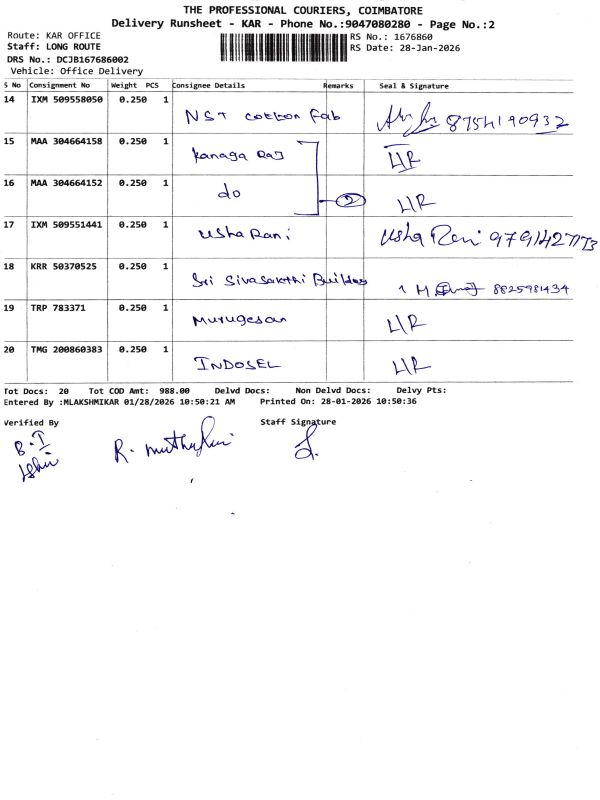 THE PROFESSIONAL COURIERS, COIMBATORE
Delivery Runsheet - KAR - Phone No.:9047080280 - Page No.:2
Route: KAR OFFICE
Staff: LONG ROUTE
DRS No.: DCJB167686002
Vehicle: Office Delivery
RS No.: 1676860
RS Date: 28-Jan-2026
S No Consignment No Weight PCS Consignee Details Remarks Seal & Signature
14 IXM 509558050 0.250 1 NST cotton Fab 8754190932
15 MAA 304664158 0.250 1 Kanaga Raj L/R
16 MAA 304664152 0.250 1 do 2 L/R
17 IXM 509551441 0.250 1 Usha Rani Usha Rani
18 KRR 50370525 0.250 1 Sri Sivasakthi Builders 8825981434
19 TRP 783371 0.250 1 Murugesan L/R
20 TMG 200860383 0.250 1 INDOSEL L/R
Tot Docs: 20 Tot COD Amt: 988.00 Delvd Docs: Non Delvd Docs: Delvy Pts:
Entered By :MLAKSHMIKAR 01/28/2026 10:50:21 AM Printed On: 28-01-2026 10:50:36
Verified By Staff Signature